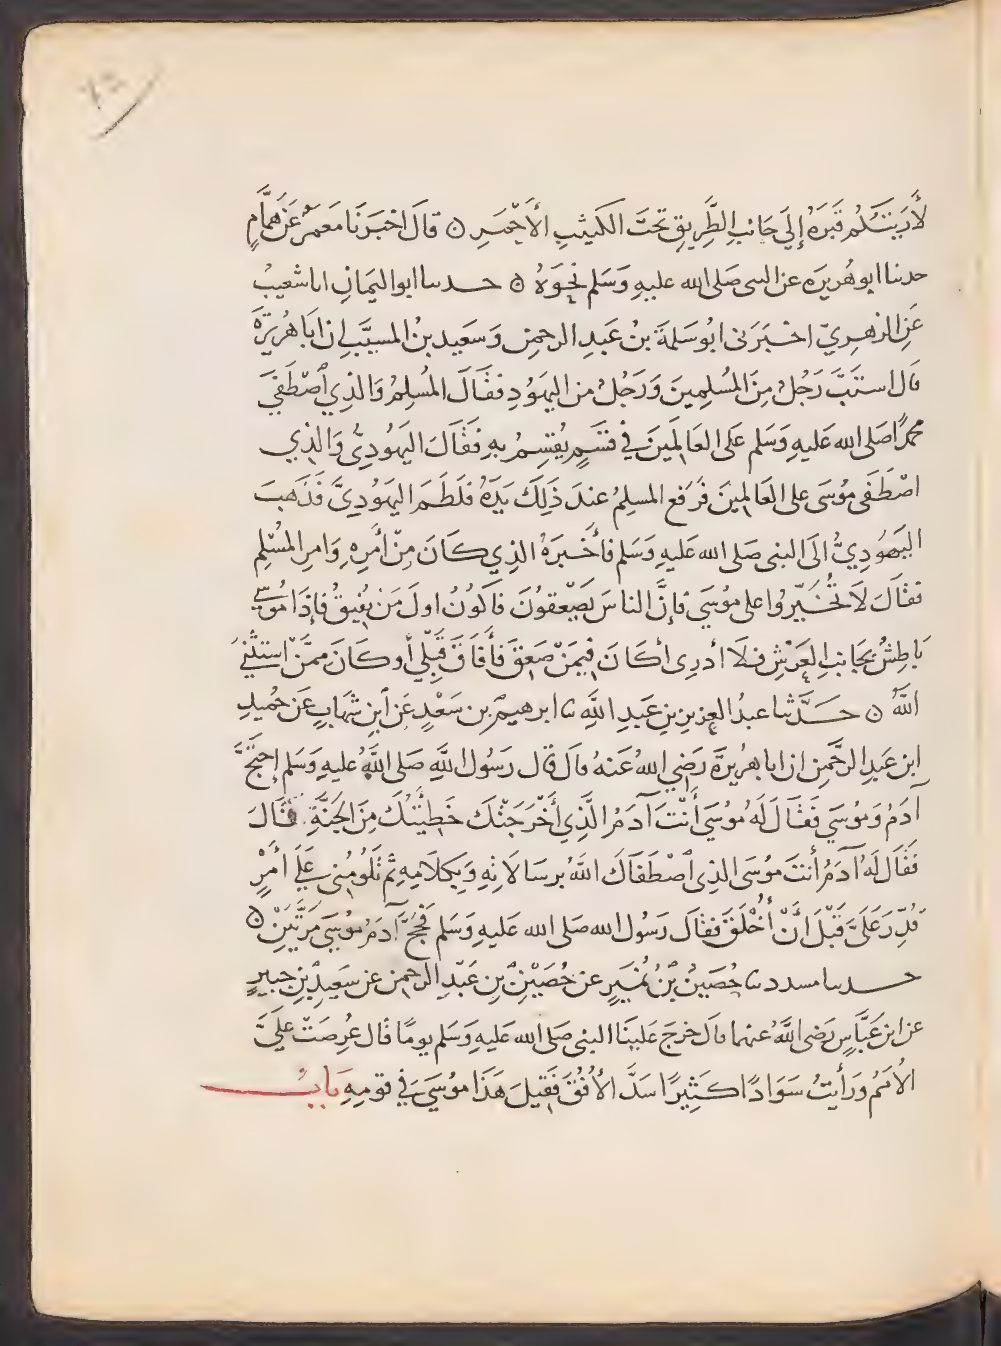 لَأَرَيْتُكُم قَبْرَهُ إِلَى جَانِبِ الطَّرِيقِ تَحْتَ الكَثِيبِ الأَحْمَرِ ۞ قَالَ اخبَرَنَا مَعْمَرٌ عَن هَمَّامٍ
حدثنا ابو هُرَيرَة عن النبى صَلى الله عليهِ وَسَلم نَحْوَهُ ۞ حـدثنا ابو اليَمَانِ انا شعَيبٌ
عَنِ الزهرِيّ اخبَرَنى ابُو سَلمَةَ بنُ عَبدِ الرحمنِ وَسَعِيد بنُ المسيَّب ان ابَا هُرَيْرَةَ
قال استَبَّ رَجُلٌ مِنَ المُسْلِمِينَ وَرَجُلٌ من اليهُودِ فقَالَ المُسلِمُ وَالذِي اصْطَفَى
محمدًا صَلى الله عَليهِ وَسَلم عَلى العَالَمِينَ في قسَمٍ يُقسِمُ بهِ فقَالَ اليَهُودِيُّ وَالذِي
اصْطَفَى مُوسَى على العَالمِينَ فَرَفع المسلِمُ عندَ ذَلِكَ يَدَهُ فلطَمَ اليَهُودِيَّ فَذَهبَ
اليَهُودِيُّ الَى النبى صَلى الله عَليهِ وَسَلم فأَخْبَرَهُ الذِي كَانَ مِنْ أَمرِهِ وَامرِ المُسْلِمِ
فقَالَ لَا تُخَيِّرُوا على مُوسَى فإنَّ الناسَ يَصْعَقونَ فَاكُونُ اولَ مَن يُفِيقُ فإذَا مُوسَى
بَاطِشٌ بجَانبِ العَرْشِ فلَا أدرِى أكَانَ فِيمَنْ صَعِقَ فَأَفَاقَ قَبْلِي أو كَانَ مِمَّنْ استثْنَى
اللَّهُ ۞ حـدَّثنا عبدُ العزيز بنِ عَبدِ اللَّهِ ثنا ابرهيم بن سَعْدٍ عَنِ ابنِ شِهَابٍ عَن حُمَيدِ
ابنِ عَبدِ الرَّحمنِ ان ابا هرَيرَةَ رَضي اللهُ عَنهُ قالَ قال رَسُول اللَّهِ صَلى اللَّهُ عليهِ وَسَلم إحتَجَّ
آدَمُ وَمُوسَى فَقَالَ لَهُ مُوسَى أَنْتَ آدَمُ الَّذِي أَخْرَجَتْكَ خَطِيئَتُكَ مِنَ الجَنَّةِ. قَالَ
فَقَال لَهُ آدَمُ أنتَ مُوسَى الذِى اصْطَفَاكَ اللَّهُ برسَالَاتِهِ وَبكلَامِهِ ثم تَلُومُنِى عَلَى أَمْرٍ
قُدِّرَ عَلَيَّ قَبْلَ أَنْ أُخْلَقَ فقَالَ رَسُول الله صَلى الله عليهِ وَسَلم فَحَجَّ آدَمُ مُوسَى مَرَّتَيْنِ ۞
حـدثنا مسدد ثنا حُصَينُ بْنُ نُمَيرٍ عن حُصَيْنِ بنِ عَبْدِ الرحمن عن سَعِيدِ بنِ جبيرٍ
عن ابن عَبَّاسٍ رَضى اللَّهُ عنهما قالَ خرجَ عَلينَا النبى صَلى الله عَليهِ وَسَلم يومًا فقال عُرِضَتْ عَلَيَّ
الأمَمُ وَرَأيتُ سَوَادًا كَثِيرًا سَدَّ الأُفُقَ فَقِيلَ هَذَا مُوسَى في قومِهِ بَابٌ